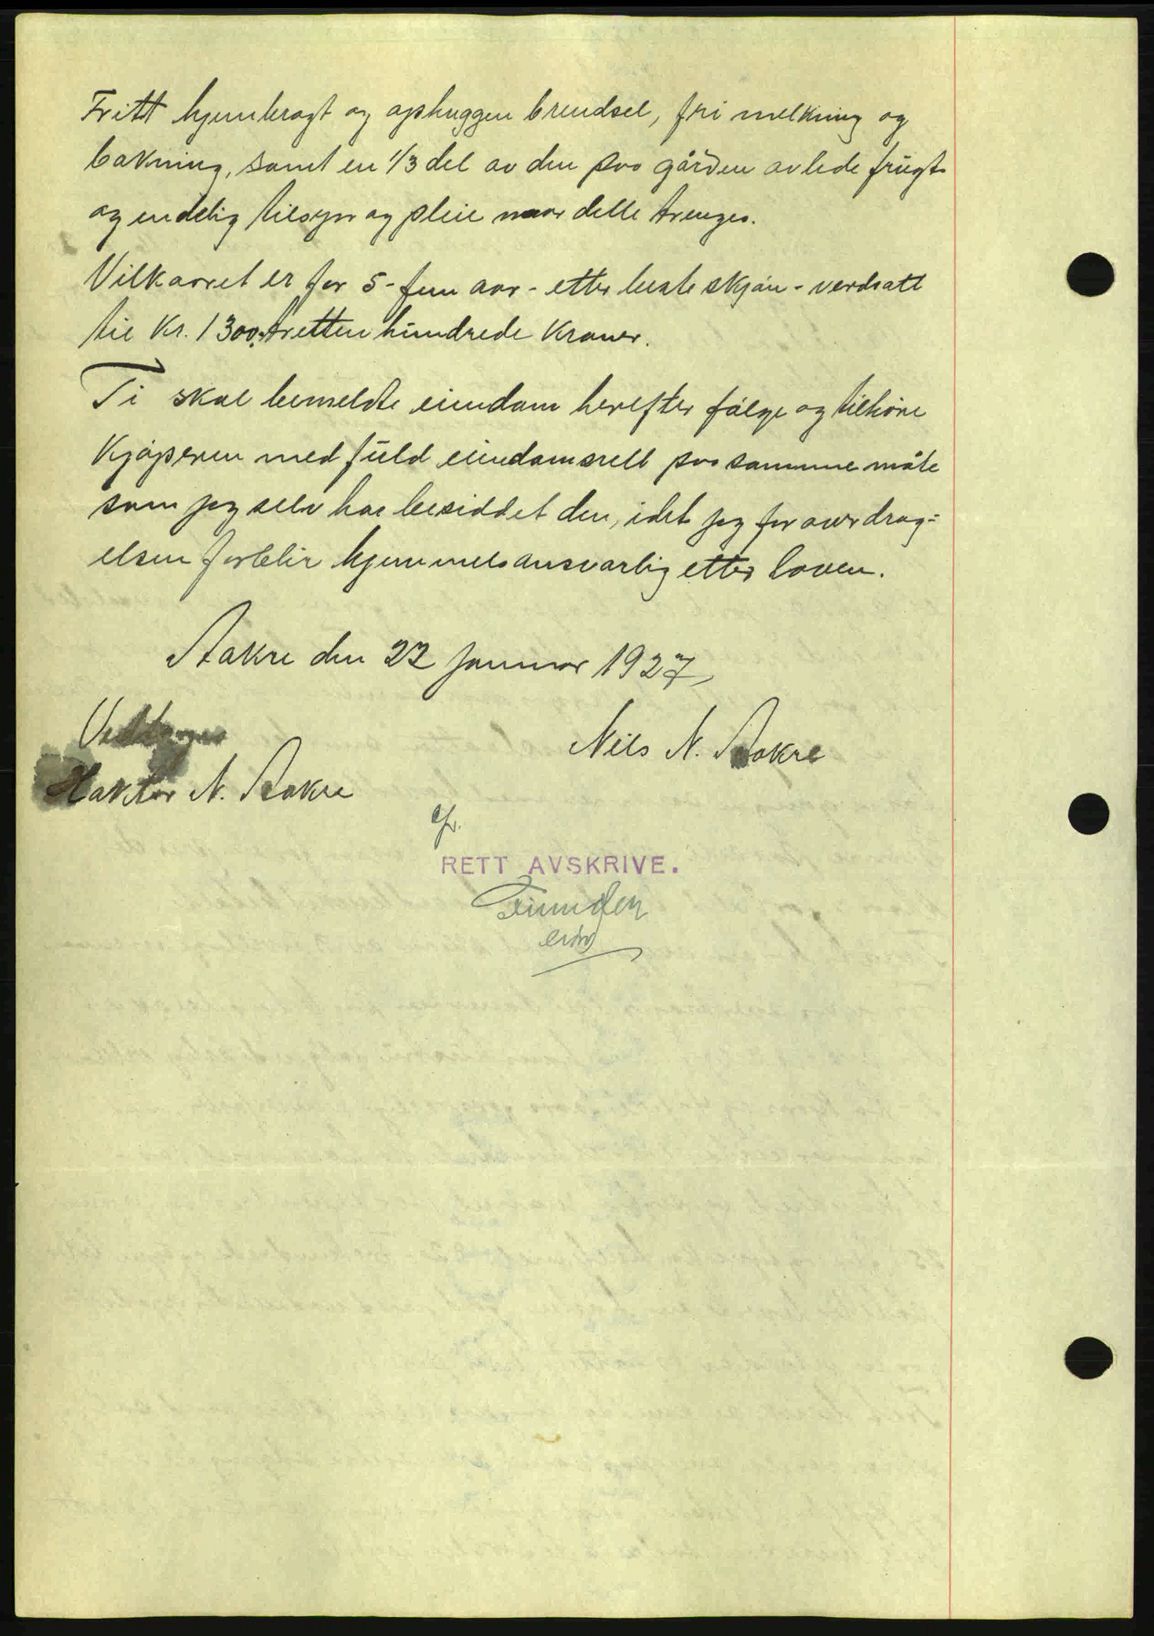 Fritt hjembragt og ophuggen brendsel, fri melkning og
bakning, samt en 1/3 del av den paa gården avlede frugt
og endelig tilsyn og pleie naar dette trenges.
Vilkaaret er for 5 - fem aar - etter beste skjøn - verdsatt
til Kr. 1300, tretten hundrede Kroner.
Ti skal bemeldte eiendom herefter følge og tilhøre
Kjøperen med fuld eiendomsrett paa samme måte
som jeg selv har besiddet den, idet jeg for overdrag=
elsen forblir hjemmelsansvarlig etter loven.
Aakre den 22 januar 1927,
Nils N. Aakre
Haktor N. Aakre
RETT AVSKRIVE.